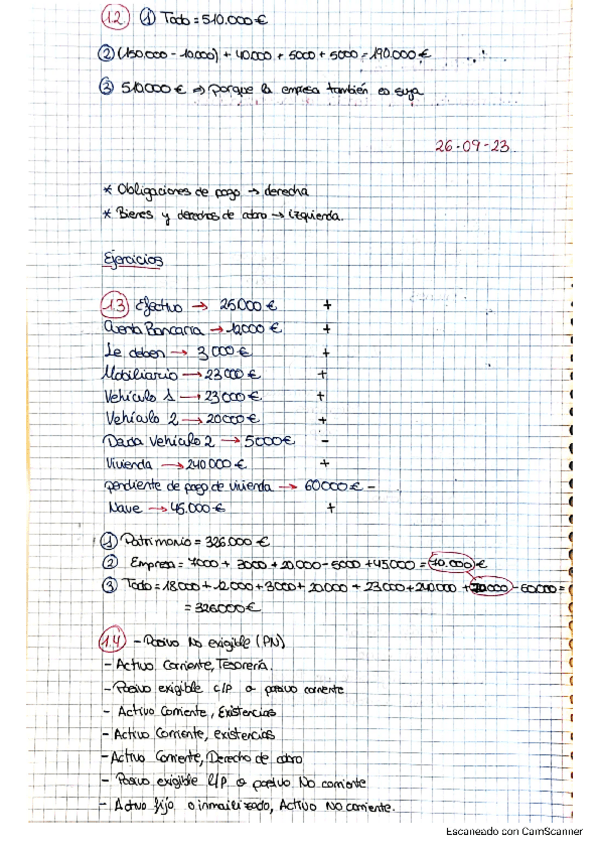 1.2 ① Todo = 510.000 €
② (150.000 - 10.000) + 40.000 + 5000 + 5000 = 190.000 €
③ 510.000 € ⇒ porque la empresa también es suya
26-09-23
* Obligaciones de pago → derecha
* Bienes y derechos de cobro → izquierda.
Ejercicios
1.3 Efectivo → 25000 € +
Cuenta Bancaria → 12000 € +
Le deben → 3000 € +
Mobiliario → 23000 € +
Vehículo 1 → 23000 € +
Vehículo 2 → 20000 € +
Deuda Vehículo 2 → 5000 € -
Vivienda → 240.000 € +
pendiente de pago de vivienda → 60000 € -
Nave → 45.000 € +
① Patrimonio = 326.000 €
② Empresa = 7000 + 3000 + 20.000 - 5000 + 45000 = 70.000 €
③ Todo = 18000 + 12.000 + 3000 + 20000 + 23000 + 240000 + 70000 - 60000 =
= 326000 €
1.4 - Pasivo No exigible (PN)
- Activo Corriente, Tesorería.
- Pasivo exigible C/P o pasivo corriente
- Activo Corriente, Existencias
- Activo Corriente, existencias
- Activo Corriente, Derecho de cobro
- Pasivo exigible L/P o pasivo No corriente
- Activo fijo o inmovilizado, Activo No corriente.
Escaneado con CamScanner